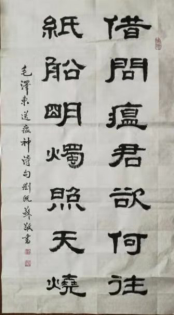 借問瘟君欲何往
紙船明燭照天燒
毛澤東送瘟神詩句